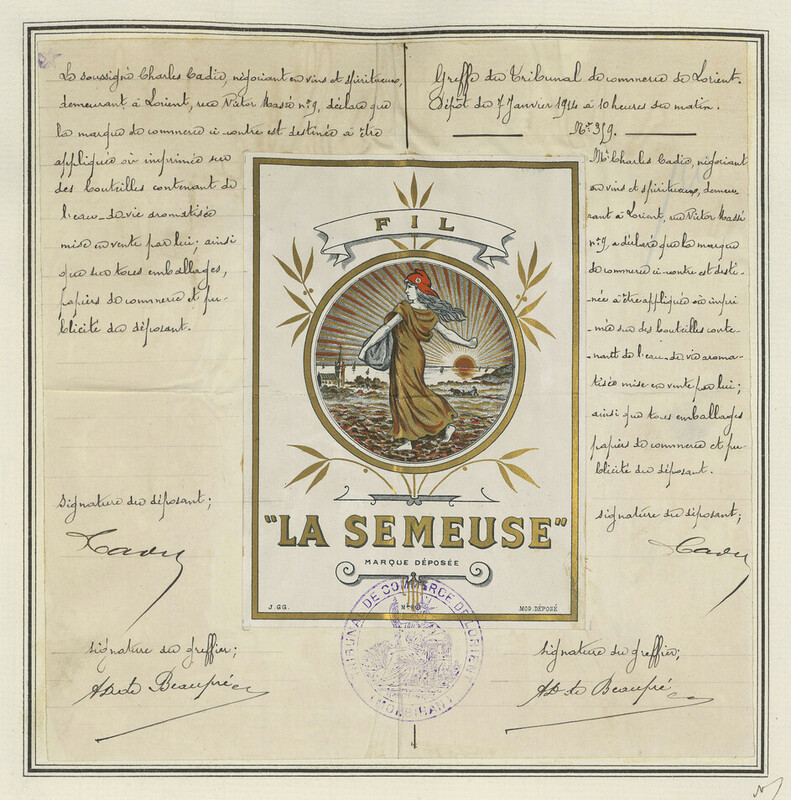 Le soussigné Charles Cadic, négociant en vins et spiritueux,
demeurant à Lorient, rue Victor Massé nº 9, déclare que
la marque de commerce ci-contre est destinée à être
appliquée où imprimée sur
des bouteilles contenant de
l'eau-de-vie aromatisée
mise en vente par lui; ainsi
que sur tous emballages,
papiers de commerce et pu-
blicité du déposant.
Signature du déposant;
Cadic
Signature du greffier;
de Beaupré
Greffe du Tribunal de commerce de Lorient.
Dépôt du 7 Janvier 1914 à 10 heures du matin.
Nº 359.
Mr Charles Cadic, négociant
en vins et spiritueux, demeu-
rant à Lorient, rue Victor Massé
nº 9, a déclaré que la marque
de commerce ci-contre est desti-
née à être appliquée où impri-
mée sur des bouteilles conte-
nant de l'eau-de-vie aroma-
tisée mise en vente par lui;
ainsi que tous emballages
papiers de commerce et pu-
blicité du déposant.
Signature du déposant;
Cadic
Signature du greffier;
de Beaupré
FIL
"LA SEMEUSE"
MARQUE DÉPOSÉE
J. GG.
MOD. DÉPOSÉ
TRIBUNAL DE COMMERCE DE LORIENT
(MORBIHAN)